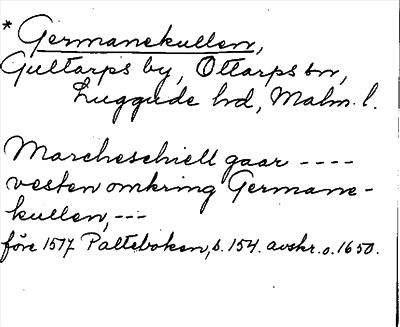 * Germanekullen,
Gultarps by, Ottarps sn,
Luggude hd, Malm. l.
Marcheschiell gaar ----
vesten omkring Germane-
kullen, ---
före 1517 Palteboken, s. 154. avskr. o. 1650.